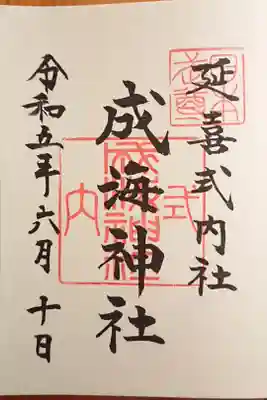 延喜式内社
成海神社
令和五年六月十日
式内
成海神社